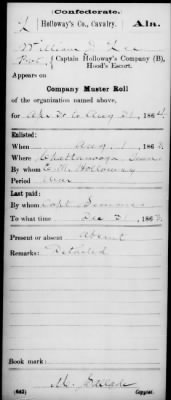 Confederate.
L | Holloway's Co., Cavalry. | Ala.
William J. Lee
Pvt., Captain Holloway's Company (B), Hood's Escort.
Appears on
Company Muster Roll
of the organization named above,
for Dec 31 to Aug 31, 1864.
Enlisted:
When Aug 1, 1863.
Where Chattanooga Tenn
By whom E. M. Holloway
Period War
Last paid:
By whom Capt Simmons
To what time Dec 31, 1863.
Present or absent Absent
Remarks: Detailed
Book mark:
(642) Copyist.